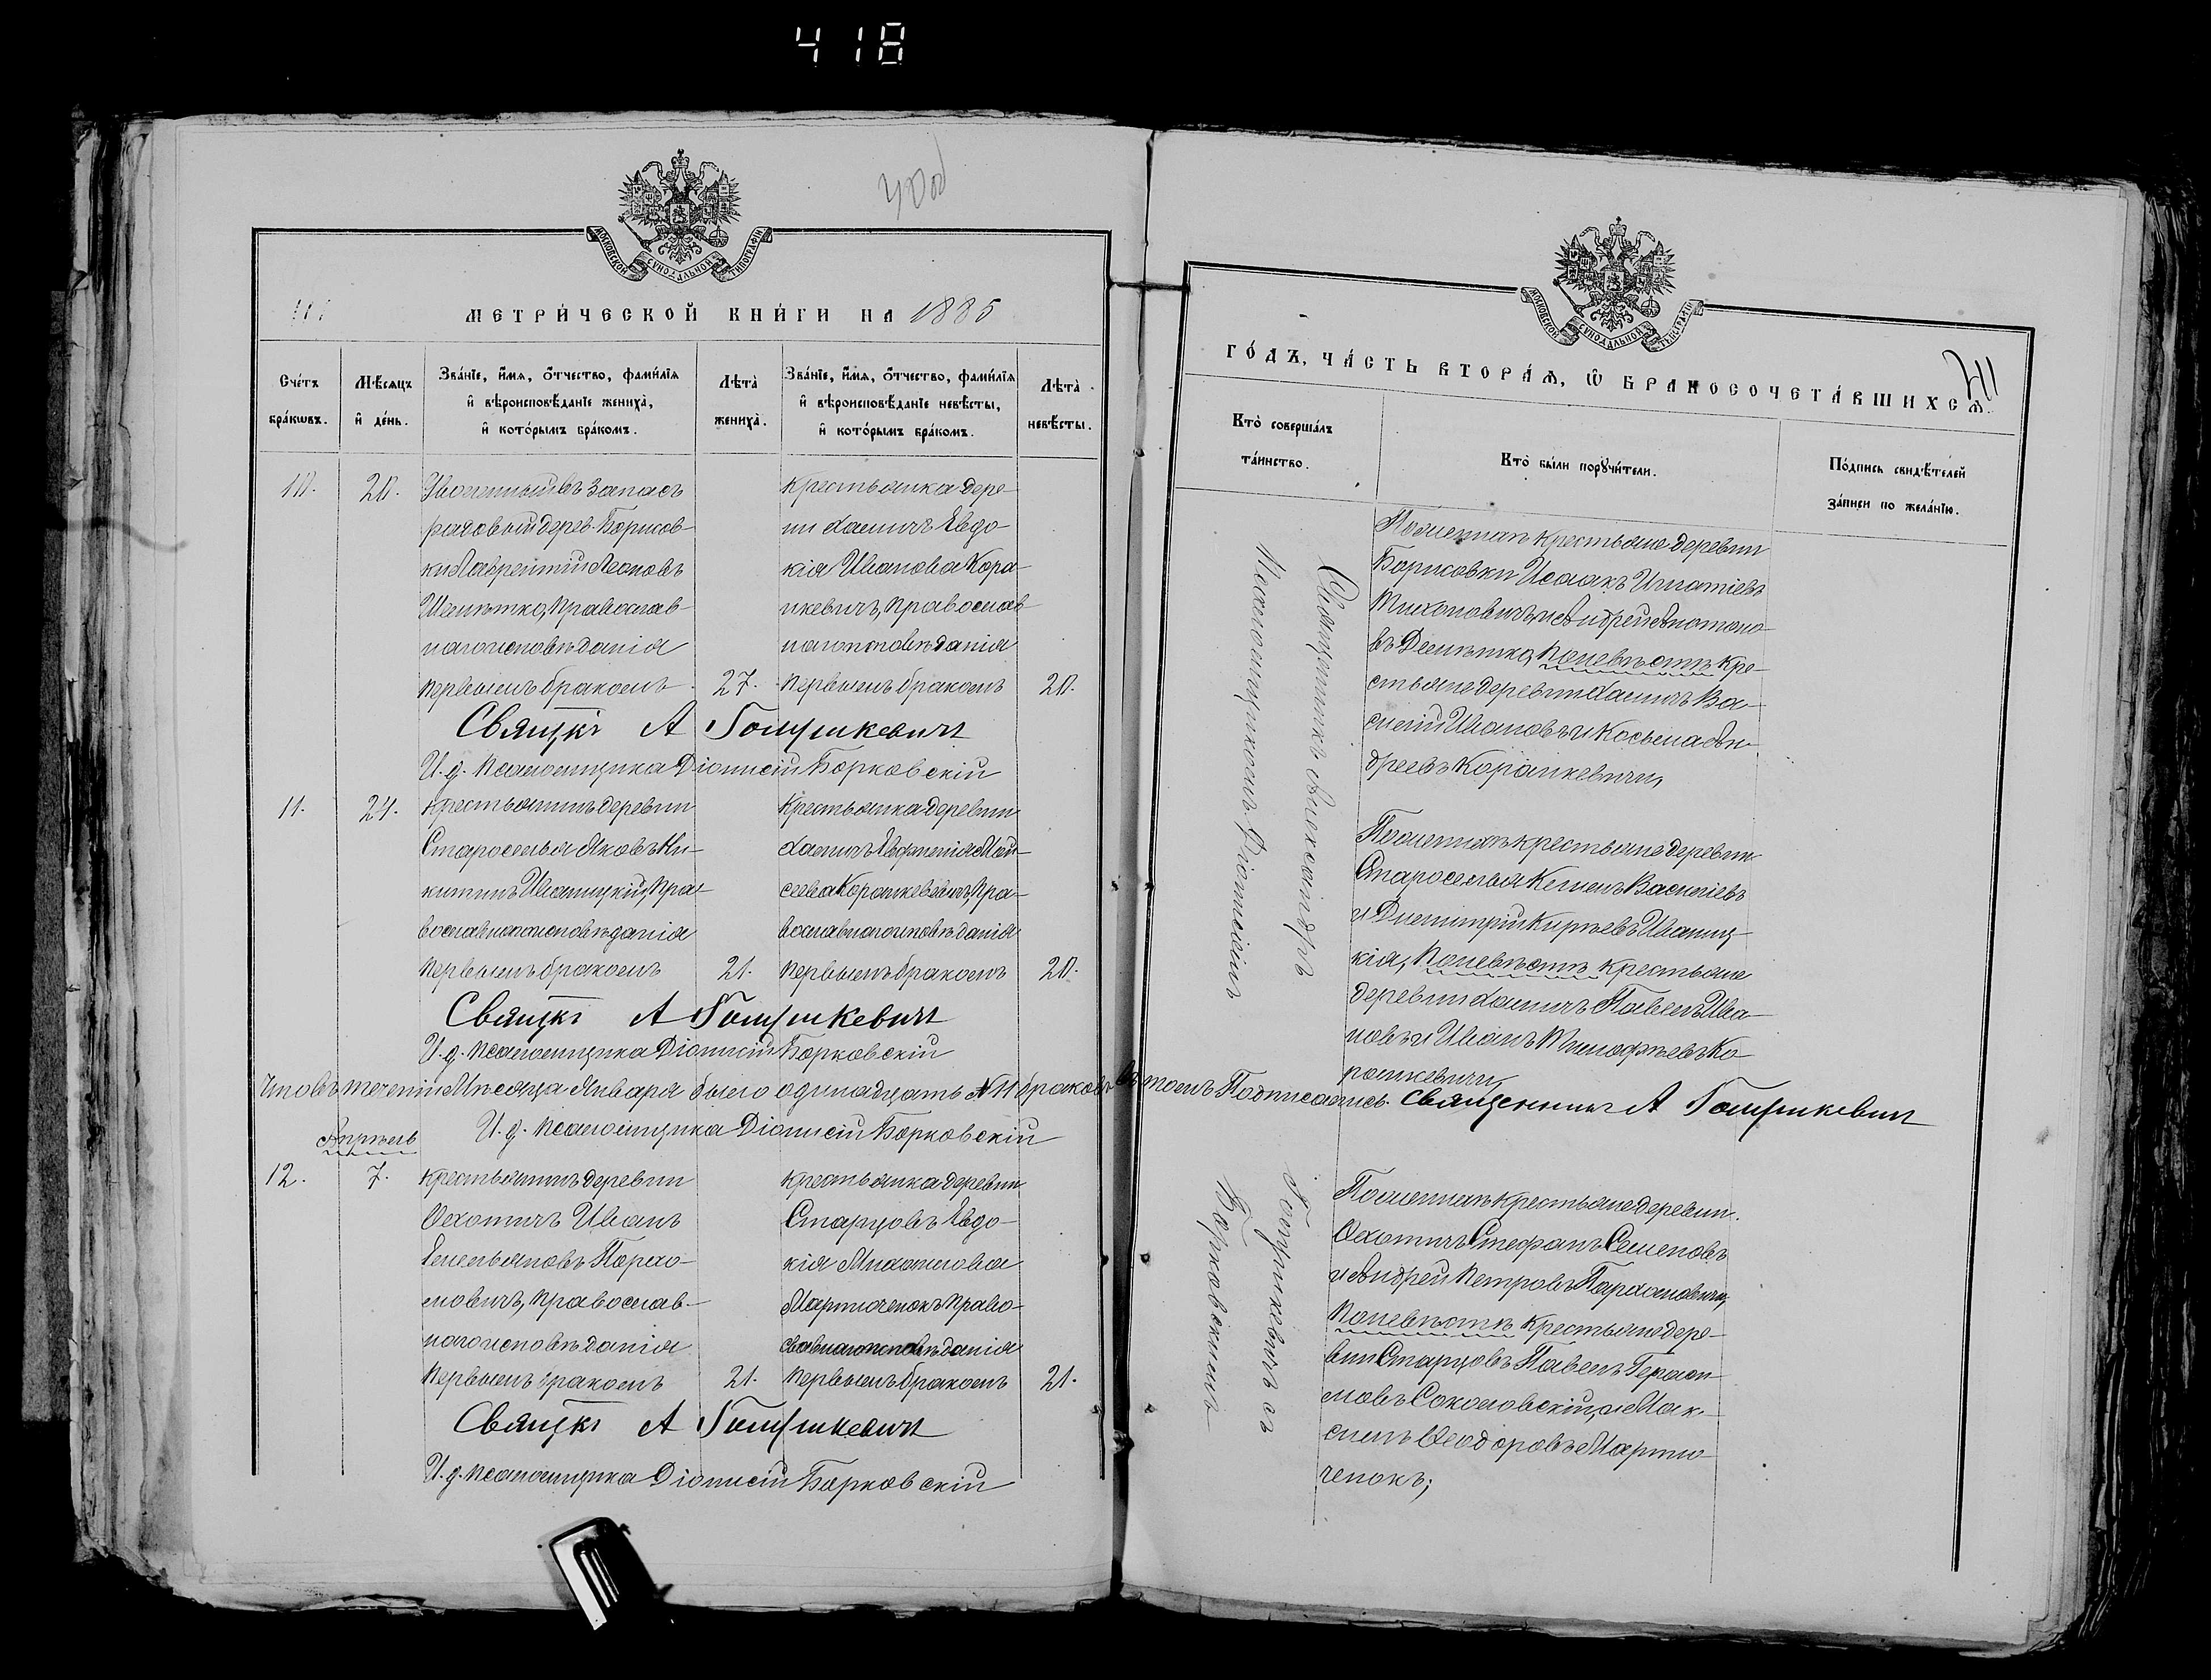 418
400
МОСКОВСКОЙ СѴНОДАЛЬНОЙ ТИПОГРАФІИ
МЕТРИ́ЧЕСКОЙ КНИ́ГИ НА 1885
Сче́тъ бра́кωвъ.
Мѣ́сяцъ и҆ де́нь.
Зва́нїе, и҆́мя, о҆́тчество, фами́лїя
и҆ вѣроисповѣ́данїе жениха̀,
и҆ кото́рымъ бра́комъ.
Лѣ́та̀ жениха̀.
Зва́нїе, и҆́мя, о҆́тчество, фами́лїя
и҆ вѣроисповѣ́данїе невѣ́сты,
и҆ кото́рымъ бра́комъ.
Лѣ́та̀ невѣ́сты.
10. 20. Уволенный въ запасъ
рядовый дерев. Борисов-
ки Лаврентій Леоновъ
православ-
наго исповѣданія
первымъ бракомъ 27.
Крестьянка дере-
Евдо-
кія Иванова Кора-
нкевичъ, православ-
наго исповѣданія
первымъ бракомъ 20.
Свящ҃къ А
И. д. псаломщика Діонисій Борковскій
11. 24. Крестьянинъ деревни
Староселья Яковъ Ни-
китинъ Иваницкій, пра-
вославнаго исповѣданія
первымъ бракомъ 21.
Крестьянка деревни
Евфимія Мои-
сеева Коранкевичъ, пра-
вославнаго исповѣданія
первымъ бракомъ 20.
Свящ҃къ А
И. д. псаломщика Діонисій Борковскій
Что въ теченіи мѣсяца Января было одинадцать № 11 браковъ въ томъ Подписались. Священникъ А
И. д. псаломщика Діонисій Борковскій
Апрѣль
12. 7. Крестьянинъ деревни
Иванъ
Емельяновъ Пархо-
мовичъ, православ-
наго исповѣданія
первымъ бракомъ 21.
Крестьянка деревни
Старцовъ Евдо-
кія Михаилова
Мартюченокъ право-
славнаго исповѣданія
первымъ бракомъ 21.
Свящ҃къ А
И. д. псаломщика Діонисій Борковскій
МОСКОВСКОЙ СѴНОДАЛЬНОЙ ТИПОГРАФІИ
ГО́ДЪ, ЧА́СТЬ ВТОРА́Я, Ѡ҆ БРАКОСОЧЕТА́ВШИХСЯ.
Кто̀ соверша́лъ
та́инство.
Кто̀ бы́ли порꙋчи́тели.
По́дпись свидѣ́телей
за́писи по жела́нїю.
Священникъ Александръ
съ
Псаломщикомъ Діонисіемъ
Борковскимъ
По женихѣ крестьяне деревни
Борисовки Исаакъ Игнатіевъ
Тихоновичъ, и Андрей Антоно-
въ по невѣстѣ кре-
стьяне деревни Ва-
силій Ивановъ и Косьма Ан-
дреевъ Коранкевичи,
По женихѣ крестьяне деревни
Староселья Василіевъ
и Димитрій Иваниц-
кія, по невѣстѣ крестьяне
деревни Павелъ Ива-
новъ и Иванъ Тимофѣевъ Ко-
ранкевичи,
По женихѣ крестьяне деревни
Стефанъ Семеновъ
и Андрей Петровъ Пархомовичи,
по невѣстѣ крестьяне дере-
вни Старцовъ Павелъ Гераси-
мовъ Соколовскій, и Мак-
симъ Ѳеодоровъ Мартю-
ченокъ;